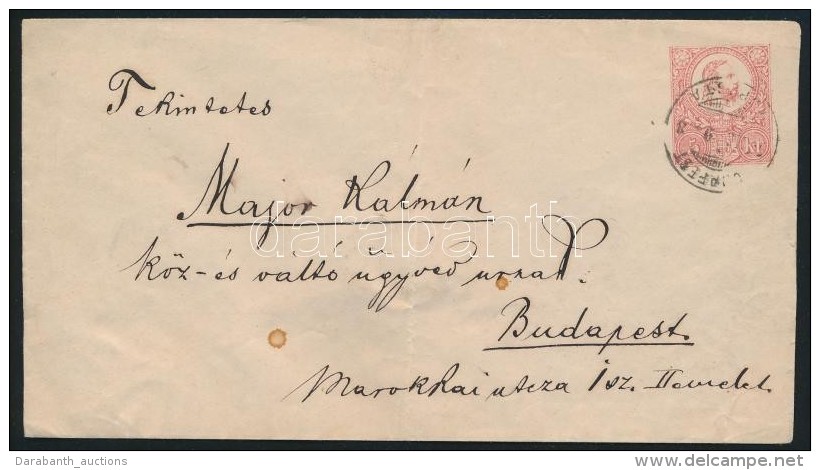 Tekintetes
Major Kálmán
köz- és váltó ügyvéd urnak.
Budapest.
Marokkai utcza 1 sz. II emelet.
5 Kr
darabanth
Darabanth_auctions
www.delcampe.net